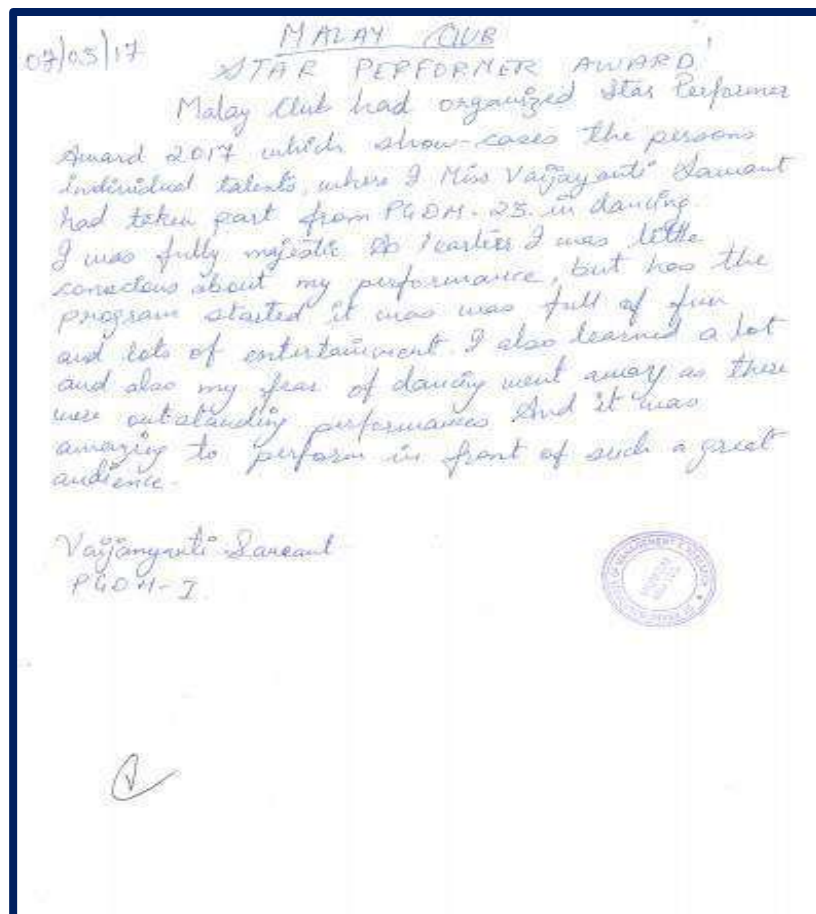 07/03/17
MALAY CLUB
STAR PERFORMER AWARD'
Malay Club had organized Star Performer
Award 2017 which show-cases the persons
individual talents, where I Miss Vaijayanti Sawant
had taken part from PGDM-23. in dancing.
I was fully majestic As earlier I was little
conscious about my performance, but has the
program started it was was full of fun
and lots of entertainment. I also learned a lot
and also my fear of dancing went away as there
were outstanding performances And it was
amazing to perform in front of such a great
audience.
Vaijanyanti Sawant
PGDM-I
OF MANAGEMENT & RESEARCH